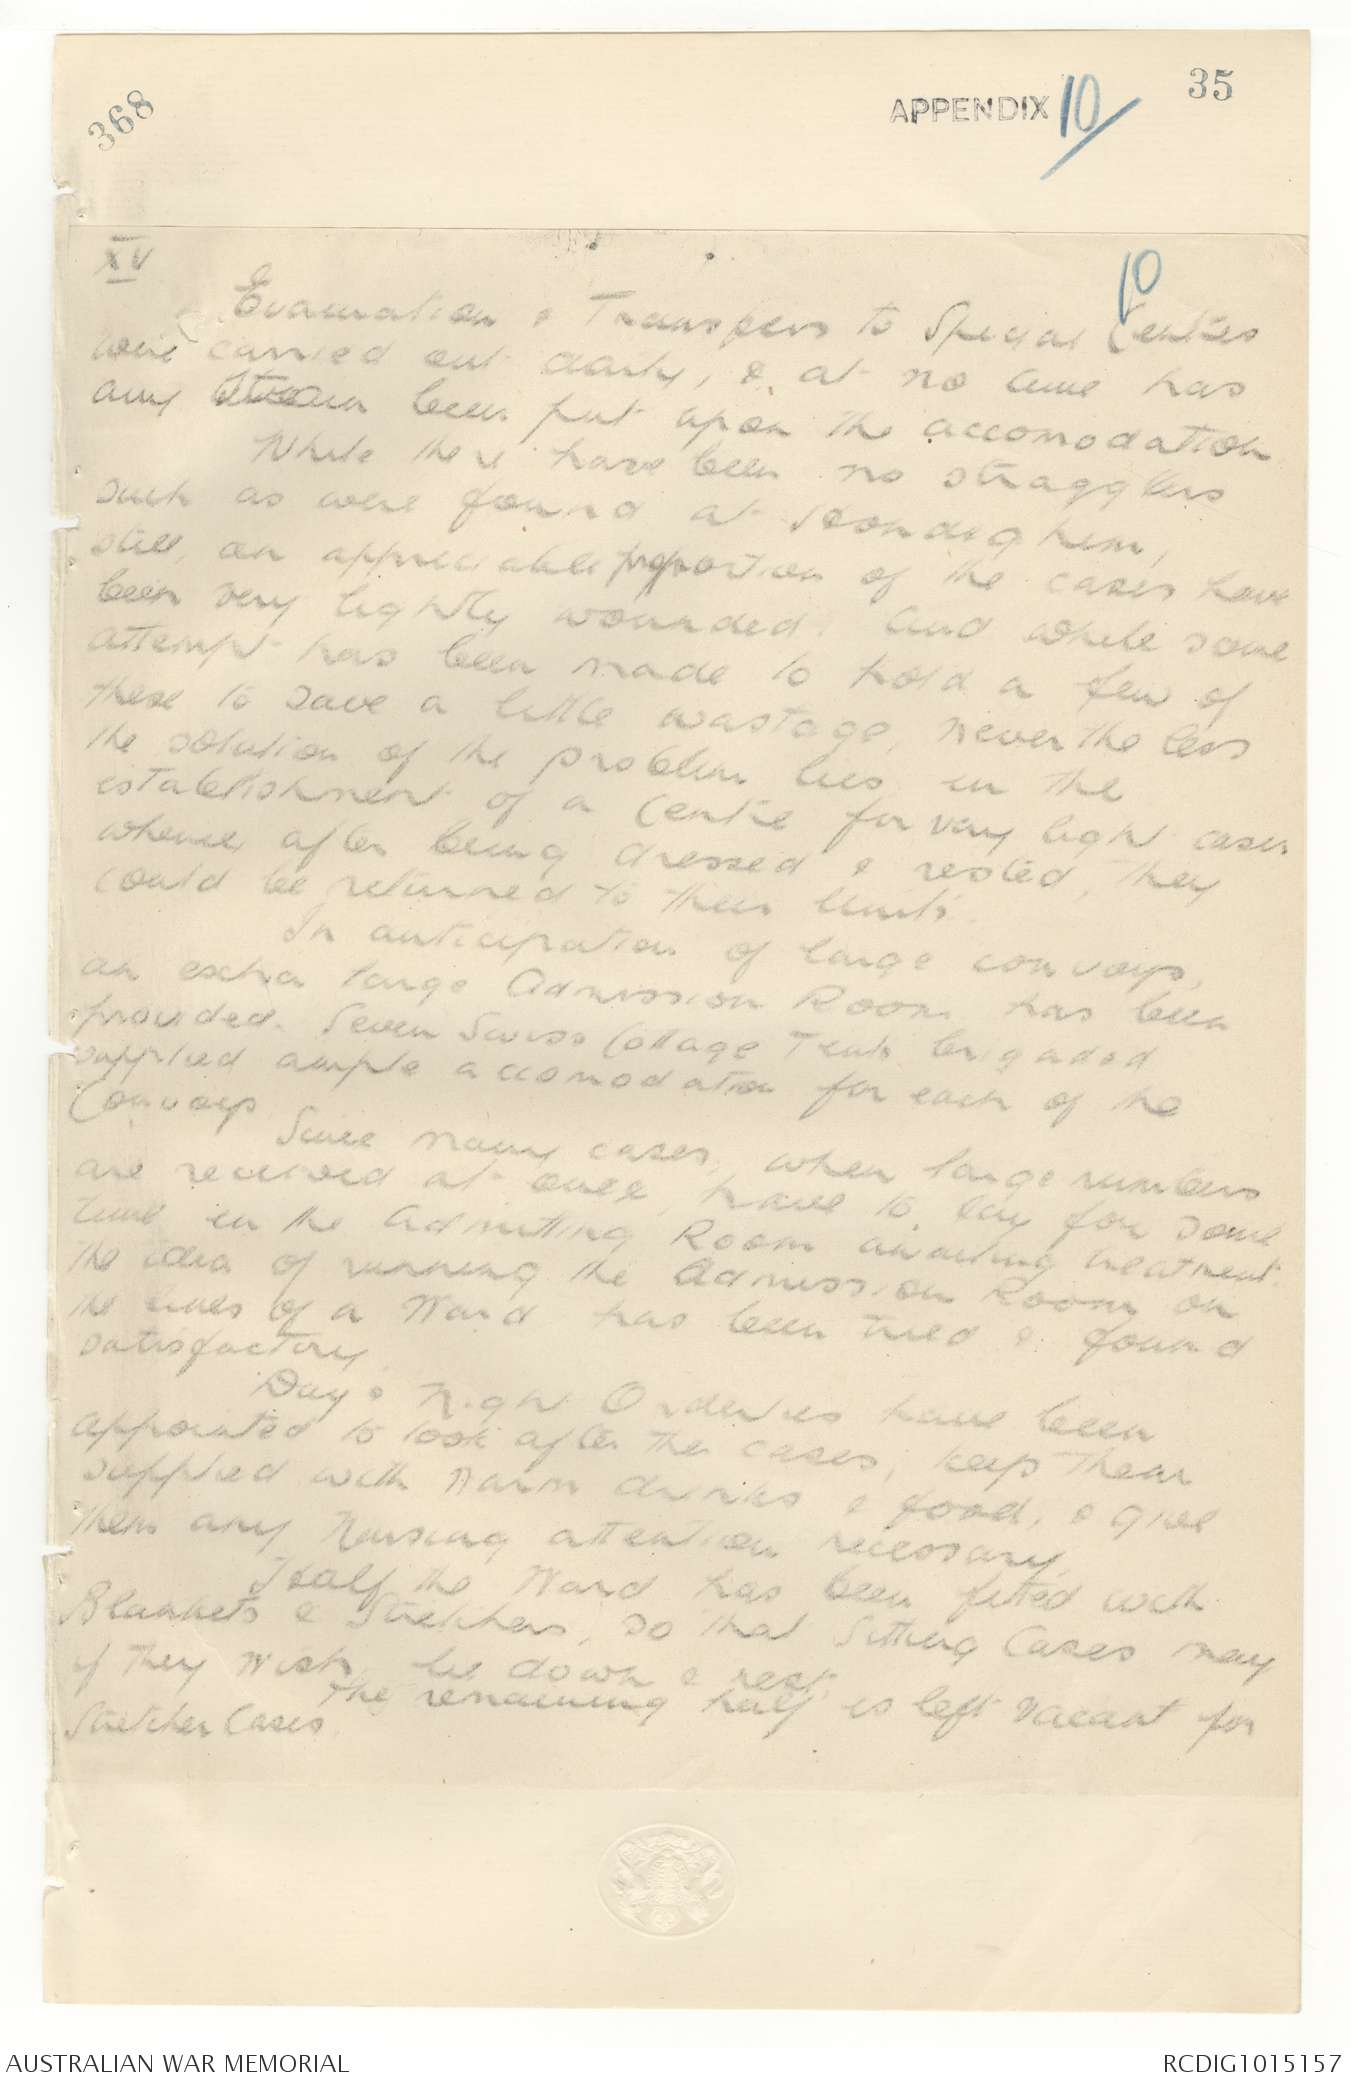 368
APPENDIX 10
35
XV
10
Evacuation & Transfers to Special Centres
were carried out daily, & at no time has
any strain been put upon the accomodation
While there have been no stragglers
such as were found at
still, an appreciable proportion of the cases have
been very lightly wounded. And while some
attempt has been made to hold a few of
these to save a little wastage, never the less
the solution of the problem lies in the
establishment of a Centre for very light cases
whence after being dressed & rested, they
could be returned to their units.
In anticipation of large convoys,
an extra large Admission Room has been
provided. Seven Swiss Cottage Tents brigaded
supplied ample accomodation for each of the
Convoys
Since many cases, when large numbers
are received at once, have to lay for some
time in the Admitting Room awaiting treatment
the idea of running the Admission Room on
the lines of a Ward has been tried & found
satisfactory.
Day & Night Orderlies have been
appointed to look after the cases, keep them
supplied with warm drinks & food, & give
them any Nursing attention necessary.
Half the Ward has been fitted with
Blankets & Stretchers, so that Sitting Cases may
if they wish, lie down & rest.
The remaining half is left vacant for
Stretcher Cases.
AUSTRALIAN WAR MEMORIAL
RCDIG1015157